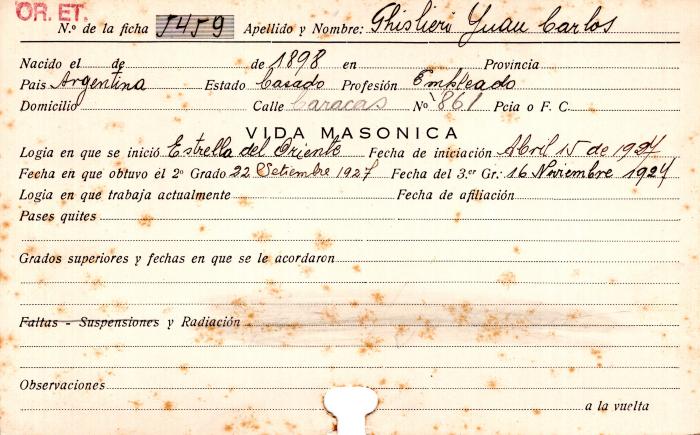 OR. ET.
N.º de la ficha 5459 Apellido y Nombre: Ghislieri Juan Carlos
Nacido el de de 1898 en Provincia
Pais Argentina Estado Casado Profesión Empleado
Domicilio Calle Caracas No 861 Pcia o F. C.
VIDA MASONICA
Logia en que se inició Estrella del Oriente Fecha de iniciación Abril 15 de 1927
Fecha en que obtuvo el 2º Grado 22 Setiembre 1927 Fecha del 3.er Gr.: 16 Noviembre 1927
Logia en que trabaja actualmente Fecha de afiliación
Pases quites
Grados superiores y fechas en que se le acordaron
Faltas - Suspensiones y Radiación
Observaciones
a la vuelta